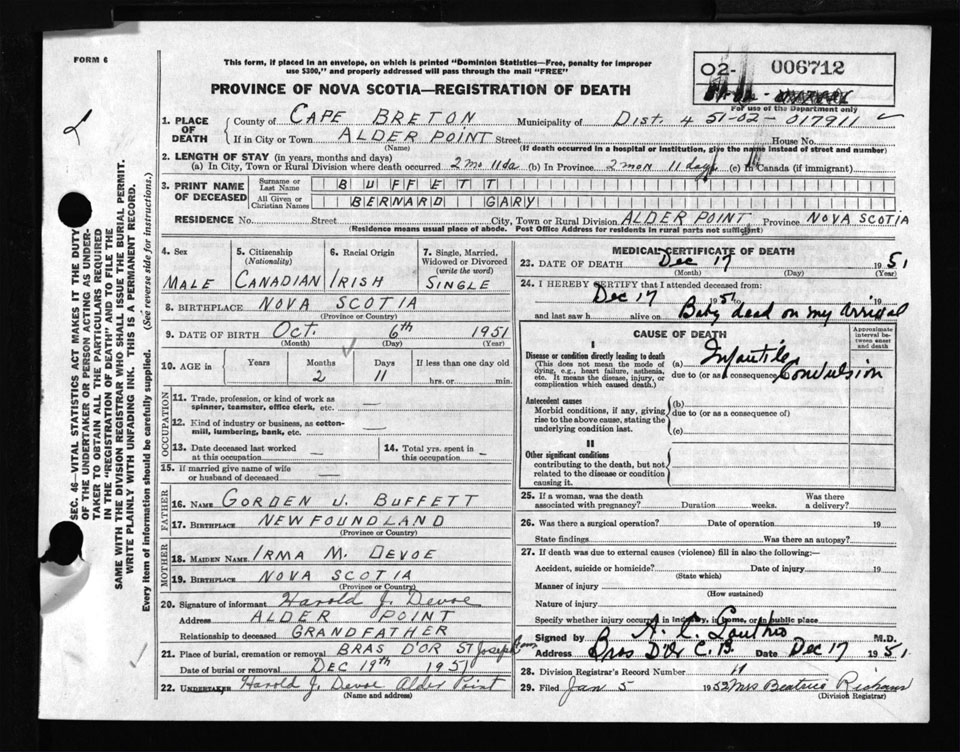 FORM 6
This form, if placed in an envelope, on which is printed "Dominion Statistics—Free, penalty for improper
use $300," and properly addressed will pass through the mail "FREE"
PROVINCE OF NOVA SCOTIA—REGISTRATION OF DEATH
02- 006712
For use of the Department only
1. PLACE OF DEATH County of CAPE BRETON Municipality of Dist. 4 51-02-017911
If in City or Town ALDER POINT Street House No.
(Name) (If death occurred in a hospital or institution, give the name instead of street and number)
2. LENGTH OF STAY (in years, months and days)
(a) In City, Town or Rural Division where death occurred 2 mo 11 da (b) In Province 2 mon 11 days (c) In Canada (if immigrant)
3. PRINT NAME OF DECEASED Surname or Last Name BUFFETT
All Given or Christian Names BERNARD GARY
RESIDENCE No. Street City, Town or Rural Division ALDER POINT Province NOVA SCOTIA
(Residence means usual place of abode. Post Office Address for residents in rural parts not sufficient)
4. Sex MALE
5. Citizenship (Nationality) CANADIAN
6. Racial Origin IRISH
7. Single, Married, Widowed or Divorced (write the word) SINGLE
8. BIRTHPLACE NOVA SCOTIA
(Province or Country)
9. DATE OF BIRTH Oct. 6th 1951
(Month) (Day) (Year)
10. AGE in Years Months 2 Days 11 If less than one day old hrs. or min.
OCCUPATION
11. Trade, profession, or kind of work as spinner, teamster, office clerk, etc. —
12. Kind of industry or business, as cotton-mill, lumbering, bank, etc. —
13. Date deceased last worked at this occupation —
14. Total yrs. spent in this occupation —
15. If married give name of wife or husband of deceased —
FATHER
16. NAME GORDEN J. BUFFETT
17. BIRTHPLACE NEWFOUNDLAND
(Province or Country)
MOTHER
18. MAIDEN NAME IRMA M. DEVOE
19. BIRTHPLACE NOVA SCOTIA
(Province or Country)
20. Signature of informant Harold J. Devoe
Address ALDER POINT
Relationship to deceased GRANDFATHER
21. Place of burial, cremation or removal BRAS D'OR ST Joseph
Date of burial or removal DEC 19th 1951
22. UNDERTAKER Harold J. Devoe Alder Point
(Name and address)
MEDICAL CERTIFICATE OF DEATH
23. DATE OF DEATH Dec 17 1951
(Month) (Day) (Year)
24. I HEREBY CERTIFY that I attended deceased from:
Dec 17 1951 to 19
and last saw h alive on Baby dead on my arrival
CAUSE OF DEATH
Approximate interval between onset and death
I
Disease or condition directly leading to death
(This does not mean the mode of dying, e.g., heart failure, asthenia, etc. It means the disease, injury, or complication which caused death.)
(a) Infantile
due to (or as a consequence of) Convulsion
Antecedent causes
Morbid conditions, if any, giving rise to the above cause, stating the underlying condition last.
(b)
due to (or as a consequence of)
(c)
II
Other significant conditions
contributing to the death, but not related to the disease or condition causing it.
25. If a woman, was the death associated with pregnancy? Duration weeks. Was there a delivery?
26. Was there a surgical operation? Date of operation 19
State findings Was there an autopsy?
27. If death was due to external causes (violence) fill in also the following:—
Accident, suicide or homicide? Date of injury 19
(State which)
Manner of injury
(How sustained)
Nature of injury
Specify whether injury occurred in industry, in home, or in public place
Signed by M.D.
Address Bras D'Or C.B. Date Dec 17 1951
28. Division Registrar's Record Number
29. Filed Jan 5 1952 Mrs Beatrice
(Division Registrar)
SEC. 46—VITAL STATISTICS ACT MAKES IT THE DUTY
OF THE UNDERTAKER OR PERSON ACTING AS UNDER-
TAKER TO OBTAIN ALL THE PARTICULARS REQUIRED
IN THE "REGISTRATION OF DEATH" AND TO FILE THE
SAME WITH THE DIVISION REGISTRAR WHO SHALL ISSUE THE BURIAL PERMIT.
WRITE PLAINLY WITH UNFADING INK. THIS IS A PERMANENT RECORD.
Every item of information should be carefully supplied. (See reverse side for instructions.)